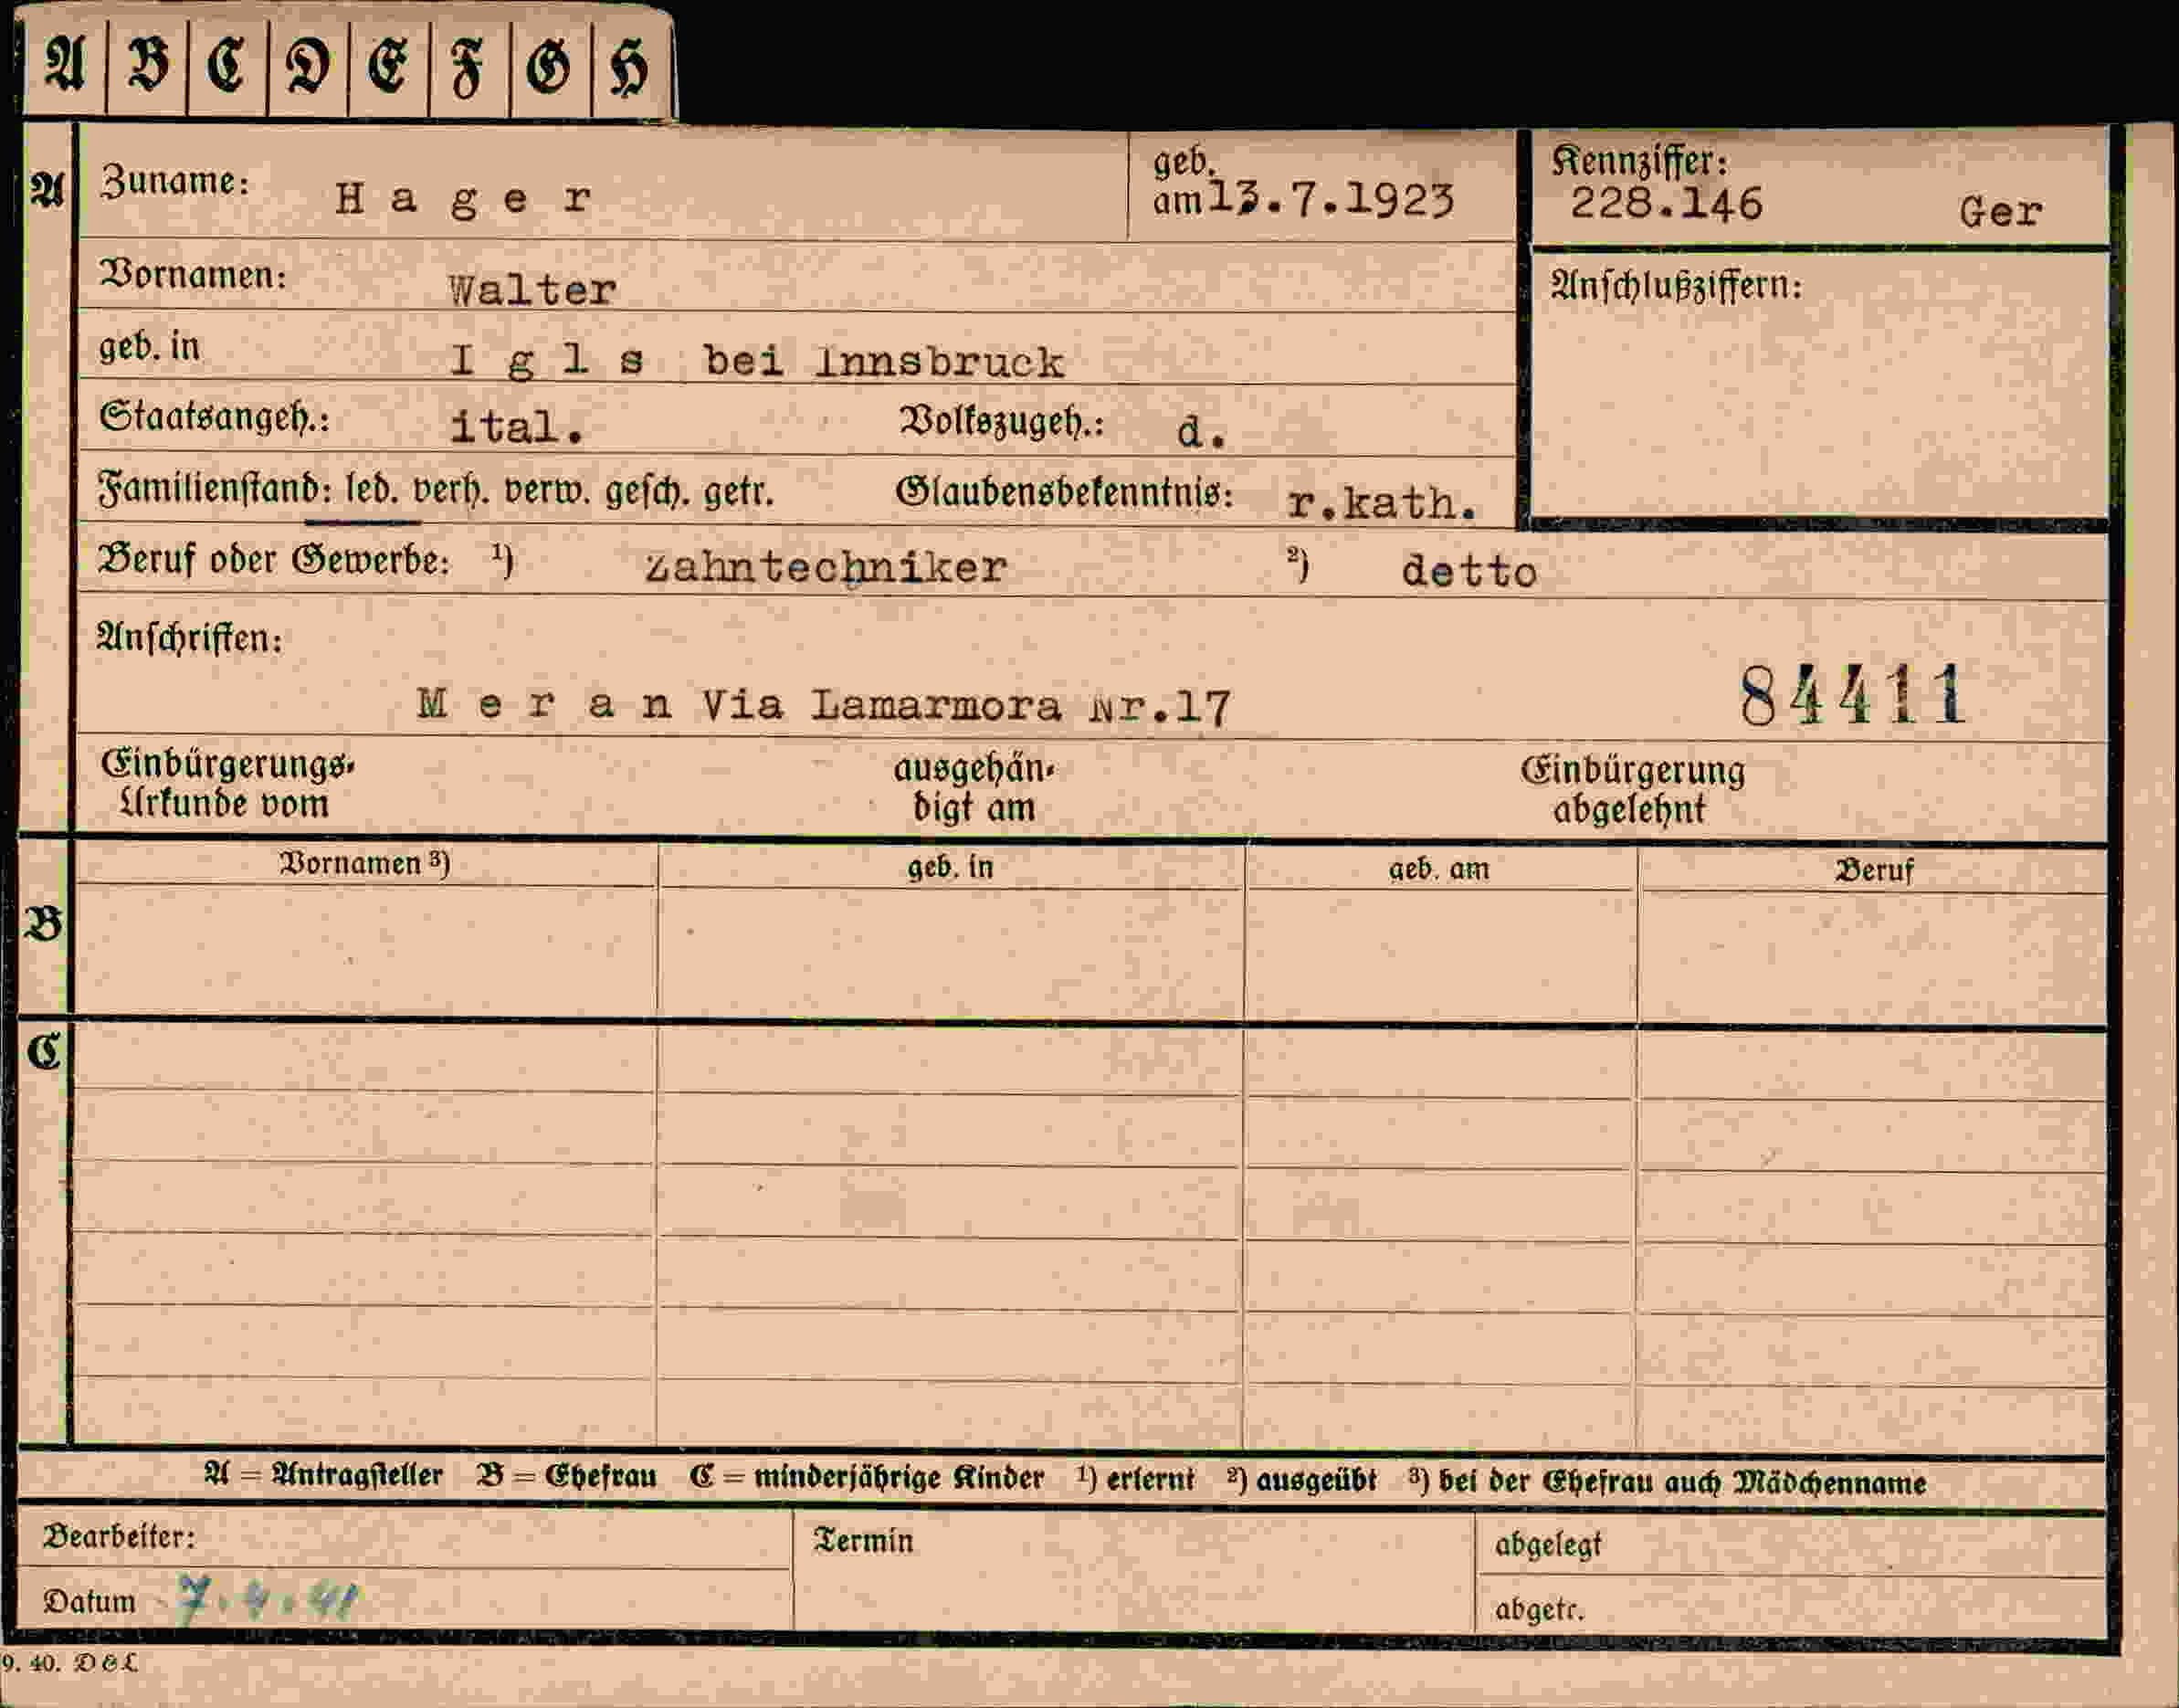 A B C D E F G H
A Zuname: H a g e r geb. am 13.7.1923 Kennziffer: 228.146 Ger
Vornamen: Walter Anschlußziffern:
geb. in I g l s bei Innsbruck
Staatsangeh.: ital. Volkszugeh.: d.
Familienstand: led. verh. verw. gesch. getr. Glaubensbekenntnis: r.kath.
Beruf oder Gewerbe: 1) Zahntechniker 2) detto
Anschriften:
M e r a n Via Lamarmora Nr.17 84411
Einbürgerungs- ausgehän- Einbürgerung
Urkunde vom digt am abgelehnt
Vornamen 3) geb. in geb. am Beruf
B
C
A = Antragsteller B = Ehefrau C = minderjährige Kinder 1) erlernt 2) ausgeübt 3) bei der Ehefrau auch Mädchenname
Bearbeiter: Termin abgelegt
Datum 7.4.41 abgetr.
9. 40. D&L